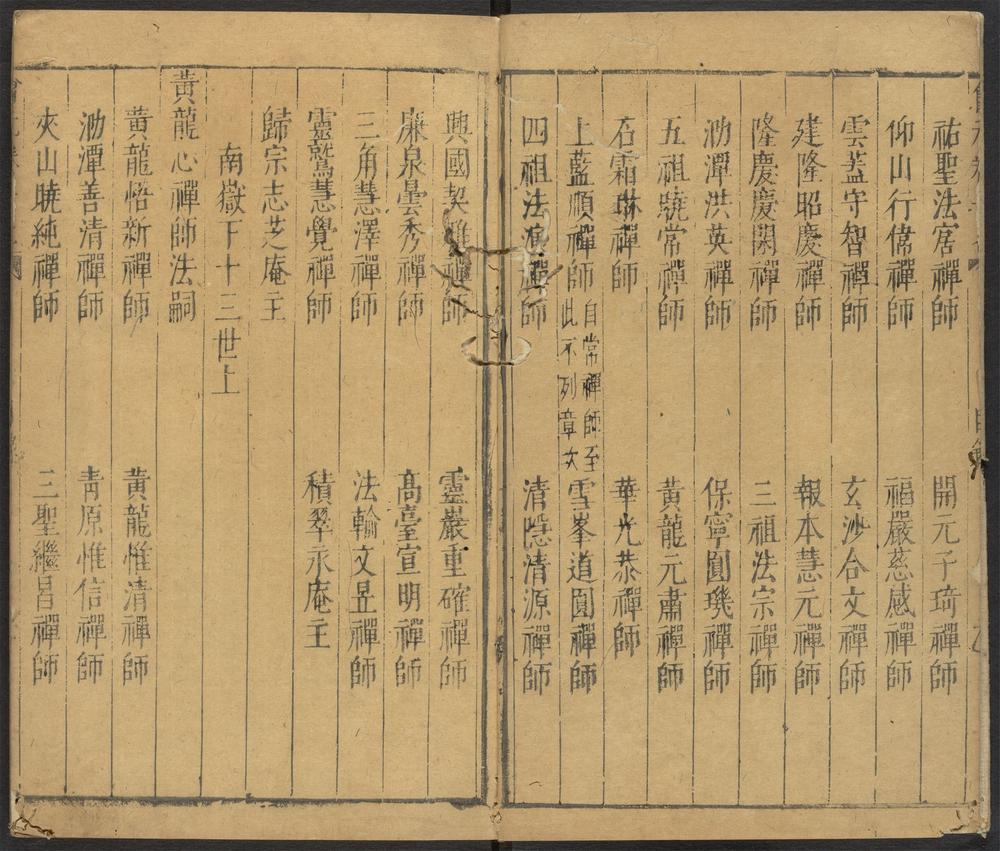 祐聖法㝛禪師　開元子琦禪師
仰山行偉禪師　福嚴慈感禪師
雲葢守智禪師　玄沙合文禪師
建隆昭慶禪師　報本慧元禪師
隆慶慶閑禪師　三祖法宗禪師
泐潭洪英禪師　保寧圓璣禪師
五祖曉常禪師　黃龍元肅禪師
石霜琳禪師　華光恭禪師
上藍順禪師　自常禪師至此不列章次　雪峯道圓禪師
四祖法演禪師　清隱清源禪師
興國契雅禪師　靈巖重確禪師
廉泉曇秀禪師　高臺宣明禪師
三角慧澤禪師　法輪文昱禪師
靈鷲慧覺禪師　積翠永庵主
歸宗志芝庵主
南嶽下十三世上
黃龍心禪師法嗣
黃龍悟新禪師　黃龍惟清禪師
泐潭善清禪師　靑原惟信禪師
夾山曉純禪師　三聖繼昌禪師